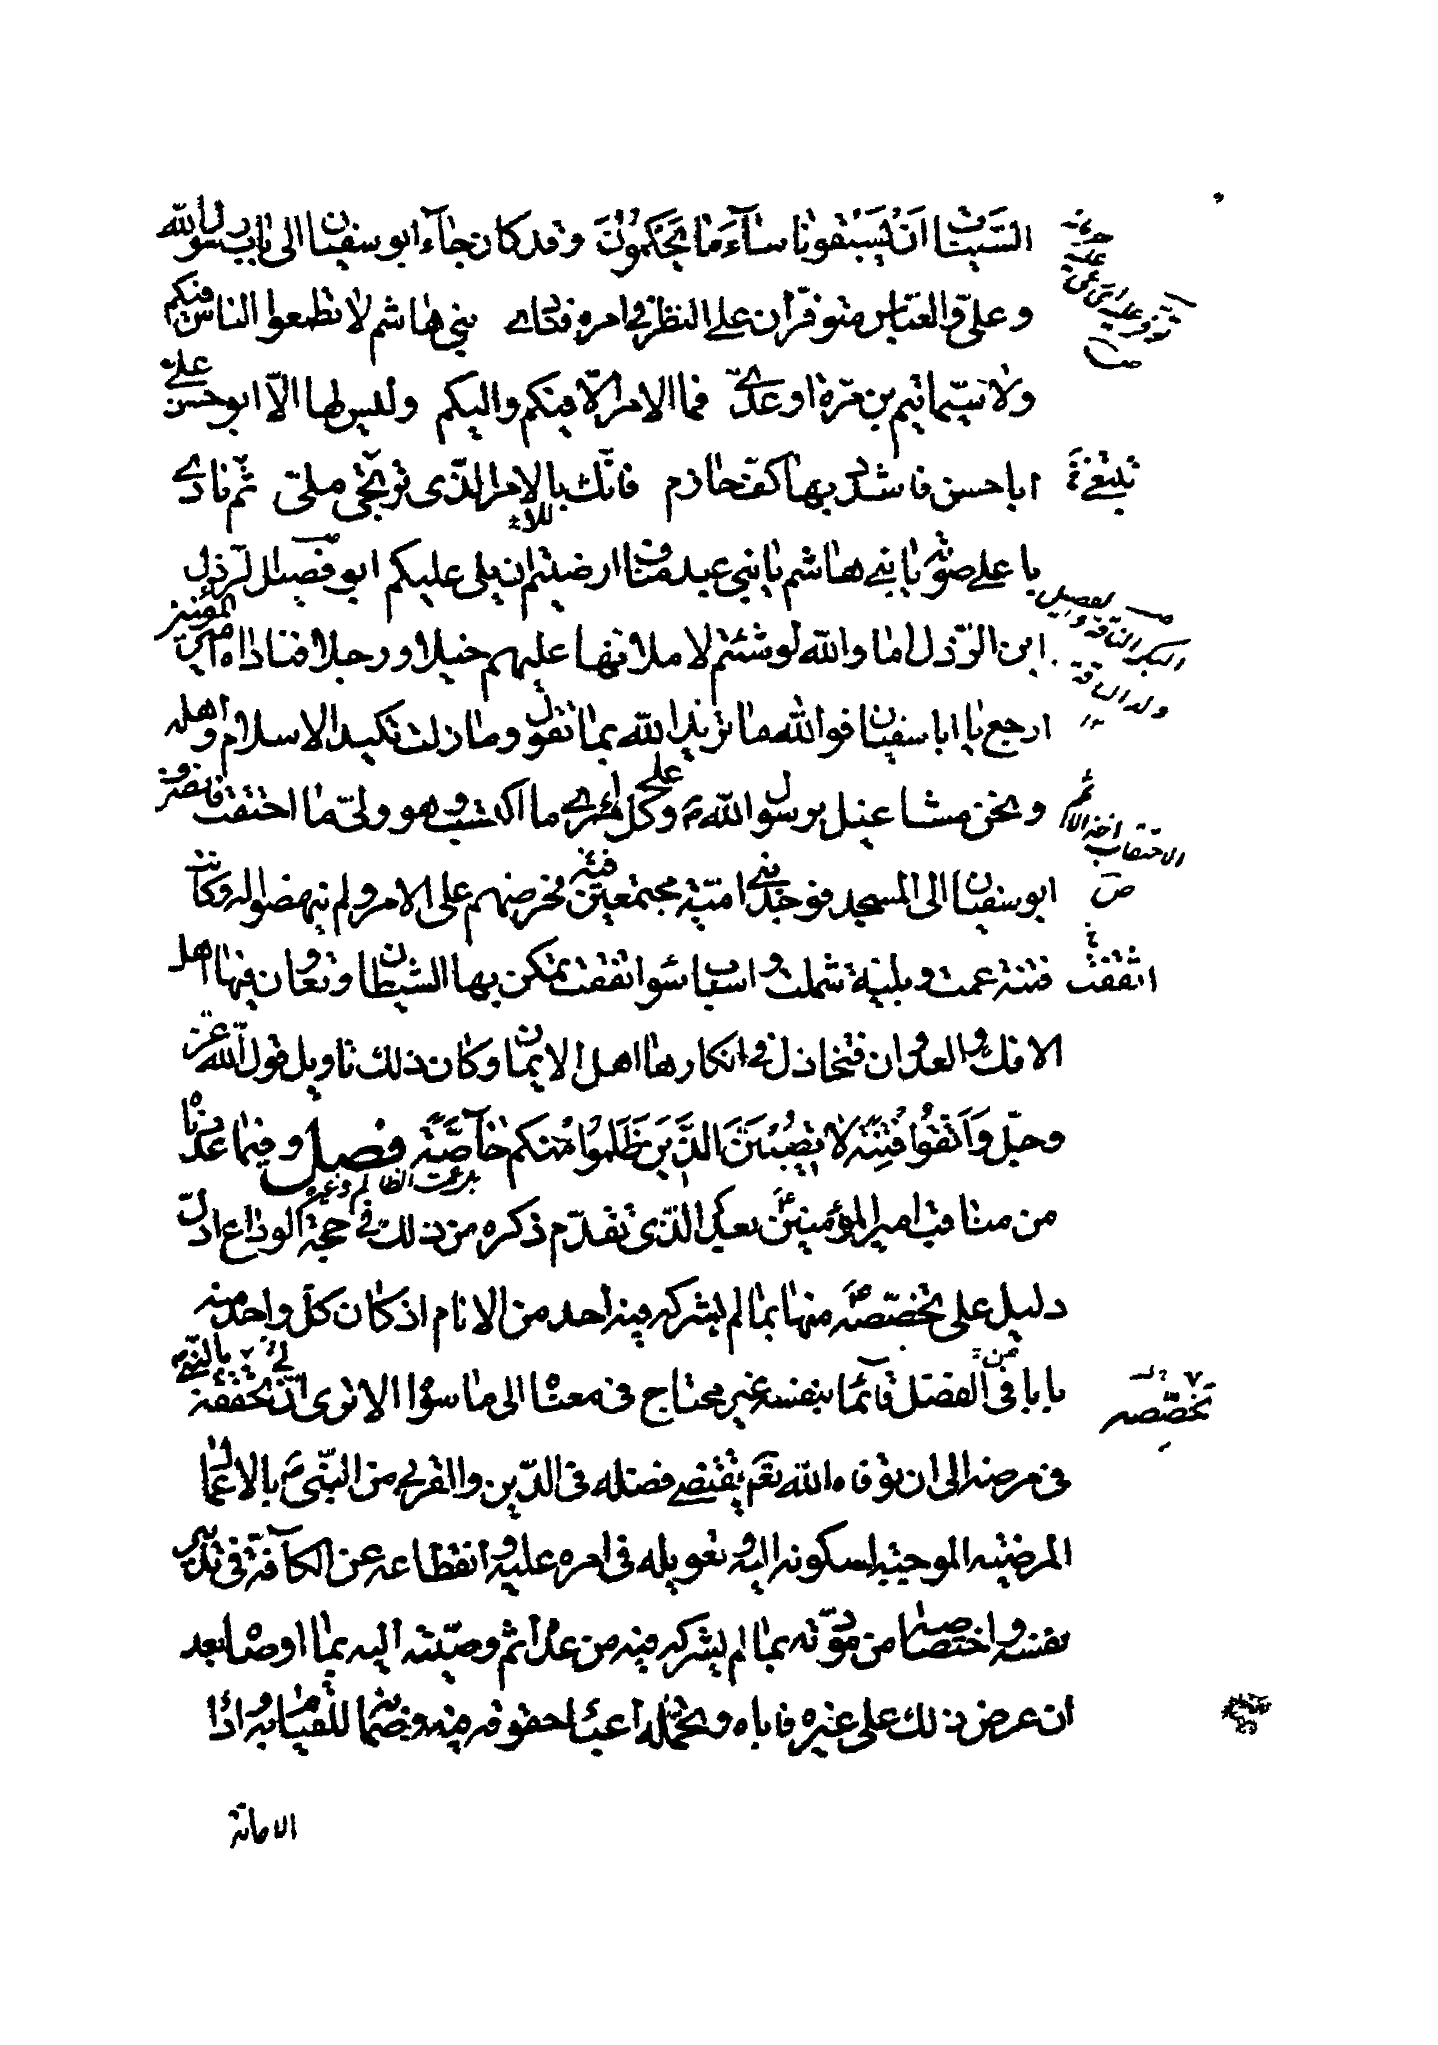 السيئات ان يسبقونا ساء ما يحكمون وقد كان جاء ابو سفيان الى باب رسول الله
وعلي والعباس متوفران على النظر في امره فنادى بني هاشم لا تطمعوا الناس فيكم
ولا سيما تيم بن مرة او عدي فما الامر الا فيكم واليكم وليس لها الا ابو حسن علي
ابا حسن فاشدد بها كف حازم فانك بالامر الذي ترتجى ملي ثم نادى
يبتغى
باعلى صوته يا بني هاشم يا بني عبد مناف ارضيتم ان يلي عليكم ابو فصيل الرذل
ابن الرذل اما والله لو شئتم لاملانها عليهم خيلا ورجلا فناداه امير المؤمنين
ارجع يا ابا سفيان فوالله ما تريد الله بما تقول وما زلت تكيد الاسلام واهله
ونحن مشاغيل برسول الله وعلى كل امرئ ما اكتسب وهو ولي ما احتقب فانصرف
ابو سفيان الى المسجد فوجد بني امية مجتمعين فيه فحرضهم على الامر ولم ينهضوا له وكانت
فتنة عمت وبلية شملت واسباب سوء اتفقت تمكن بها الشيطان وتعاون فيها اهل
اتفقت
الافك والعدوان فتخاذل في انكارها اهل الايمان وكان ذلك تاويل قول الله عز
وجل وَاتَّقُوا فِتْنَةً لَا تُصِيبَنَّ الَّذِينَ ظَلَمُوا مِنْكُمْ خَاصَّةً فصل وفيما عددناه
من مناقب امير المؤمنين بعد الذي تقدم ذكره من ذلك في حجة الوداع ادل
دليل على تخصصه منها بما لم يشركه فيه احد من الانام اذ كان كل واحد منه
بابا في الفضل قائما بنفسه غير محتاج في معناه الى ما سواه الا ترى ان تحققه بالنبي
تخصصه
في مرضه الى ان توفاه الله تعم يقتضي فضله في الدين والقربى من النبي بالاعمال
المرضية الموجبة لسكونه اليه وتعويله في امره عليه وانقطاعه عن الكافة في تدبير
نفسه واختصاصه من مودته بما لم يشركه فيه من عداه ثم وصيته اليه بما اوصاه بعد
ان عرض ذلك على غيره فاباه وتحمله اعباء حقوقه فيه وضمانه للقيام به واداء
الامانة